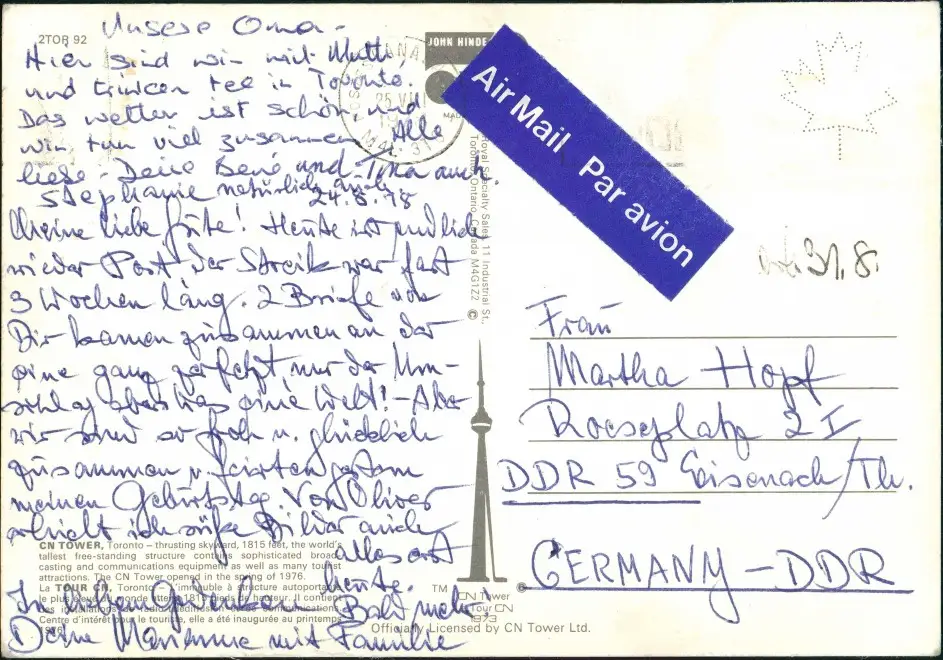 2TOR 92
Unsere Oma -
Hier sind wir mit Mutti,
und trinken tee in Toronto.
Das wetter ist schön, und
wir tun viel zusammen. Alle
liebe - Deine René und Tina auch.
Stephanie natürlich auch.
24.8.78
Meine liebe Gute! Heute ist endlich
wieder Post der Streik war fast
3 Wochen lang. 2 Briefe von
Dir kamen zusammen an der
eine ganz zerfetzt nur der Um-
schlag aber was eine Welt! - Aber
wir sind so froh u. glücklich
zusammen u. feierten gestern
meinen Geburtstag. Von Oliver
erhielt ich süße Bilder auch
alles erst
heute.
In liebem Gedenken
Bald mehr,
Deine Marianne mit Familie
CN TOWER, Toronto – thrusting skyward, 1815 feet, the world's
tallest free-standing structure contains sophisticated broad-
casting and communications equipment as well as many tourist
attractions. The CN Tower opened in the spring of 1976.
La TOUR CN, Toronto –
Centre d'intérêt pour le touriste, elle a été inaugurée au printemps
JOHN HINDE
Royal Specialty Sales, 11 Industrial St.,
Toronto, Ontario, Canada M4G1Z2 ©
TM
CN Tower
Tour CN
1973
©
Officially Licensed by CN Tower Ltd.
Air Mail Par avion
31.8.
Frau
Martha Hopf
Roeseplatz 2 I
DDR 59 Eisenach/Th.
GERMANY - DDR